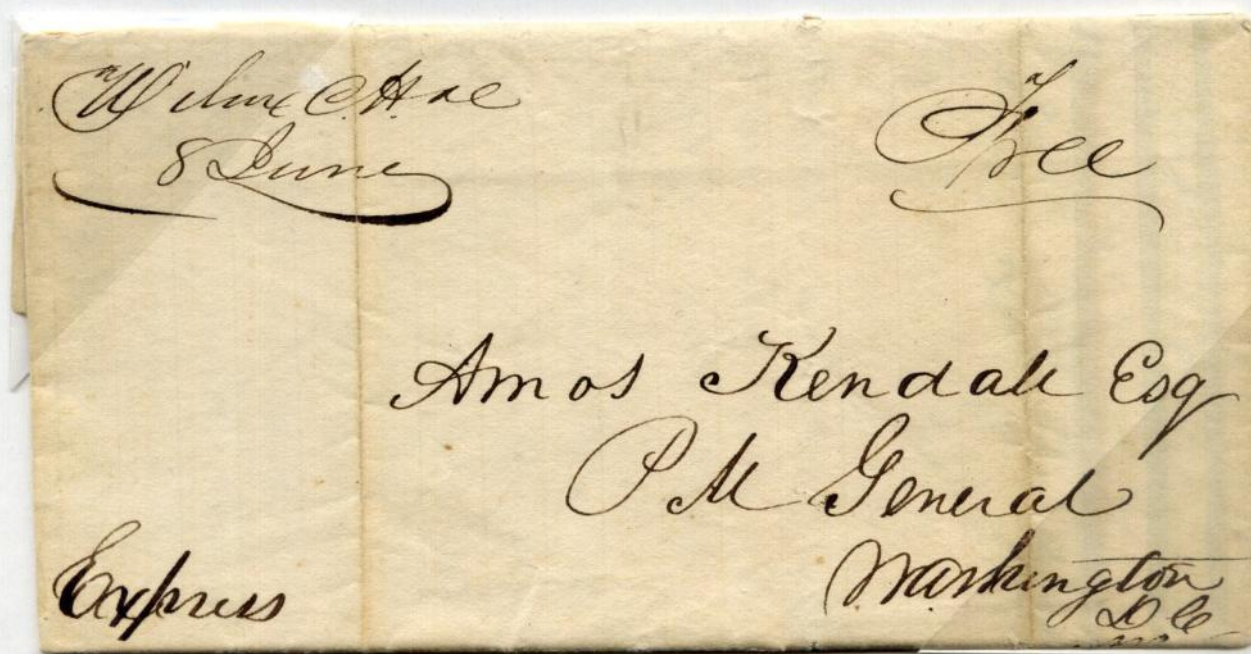 Wilcox C.H. Al
8 June
Free
Amos Kendall Esq
P M General
Washington
D C
Express